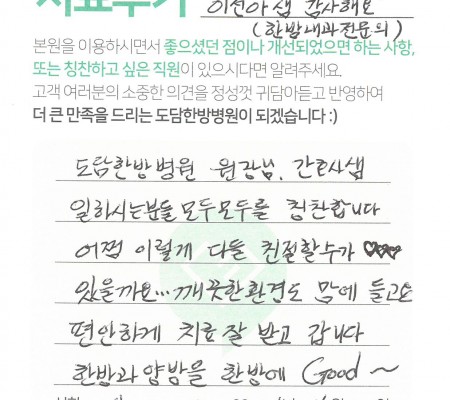 치료후기 이선아샘 감사해요
(한방내과전문의)
본원을 이용하시면서 좋으셨던 점이나 개선되었으면 하는 사항,
또는 칭찬하고 싶은 직원이 있으시다면 알려주세요.
고객 여러분의 소중한 의견을 정성껏 귀담아듣고 반영하여
더 큰 만족을 드리는 도담한방병원이 되겠습니다 :)
도담한방병원 원장님, 간호사샘
일하시는분들 모두모두를 칭찬합니다
어쩜 이렇게 다들 친절할수가 ♥♥♥
있을까요...깨끗한환경도 맘에 들고요
편안하게 치료 잘 받고 갑니다
한방과 양방을 한방에 Good ~